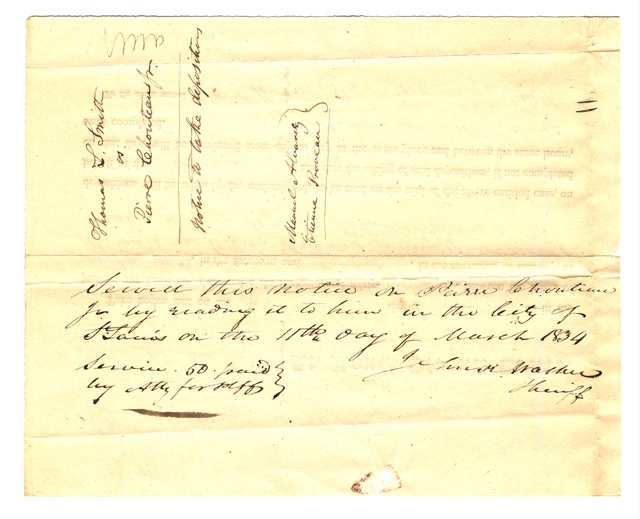 Thomas L. Smith
vs
Pierre Chouteau Jr.
Notice to take depositions
Manuel Alvarez
Etienne Proveau
Served this Notice on Pierre Chouteau
Jr by reading it to him in the City of
St Louis on the 11th day of March 1834
Service . 50 paid
by Atty for Plff
Walker
Sheriff